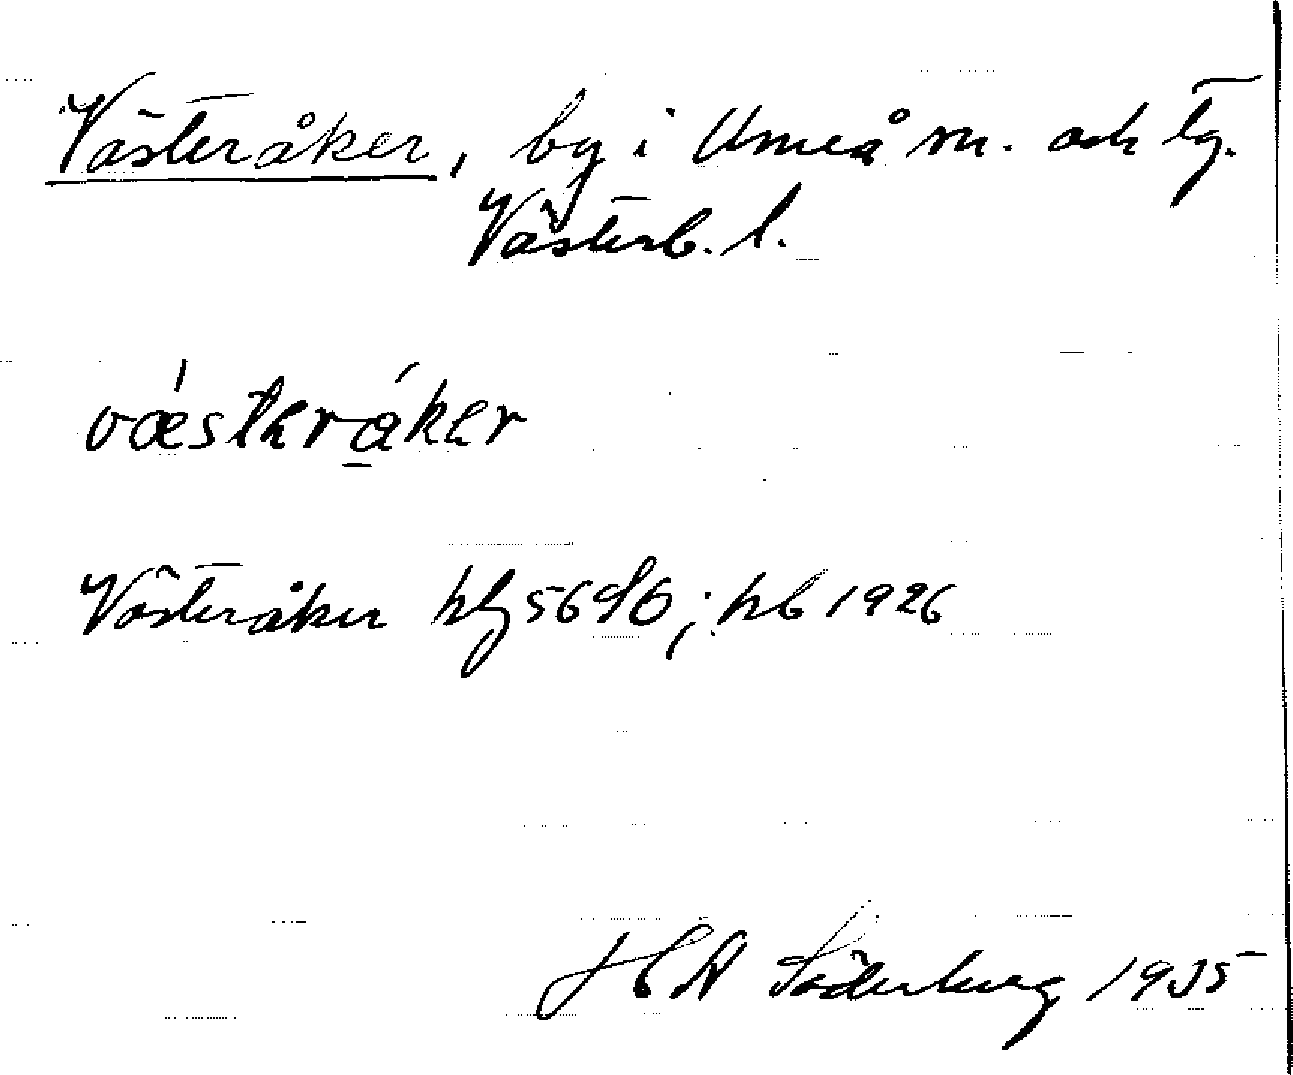 Västeråker, by i Umeå sn. och tg.
Västerb. l.
væsteråker
Västeråker hfg 5690; hb 1926
H C A Söderberg 1935